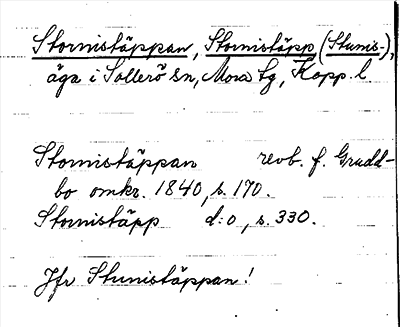 Stornistäppan, Stornistäpp (Stunis-),
äga i Sollerö sn, Mora tg, Kopp. l
Stornistäppan revb. f. Gradd-
bo omkr. 1840, s. 170.
Stornistäpp d:o, s. 330.
Jfr Stunistäppan!